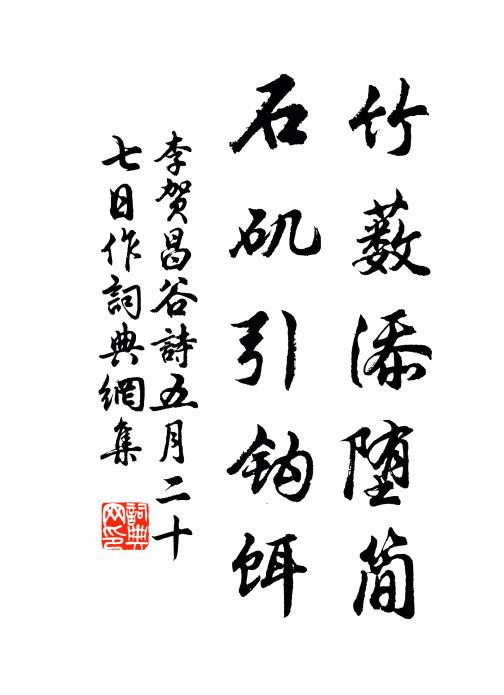 竹薮添堕简
石矶引钩饵
李贺昌谷詩五月二十
七日作詞典網集
詞典网印